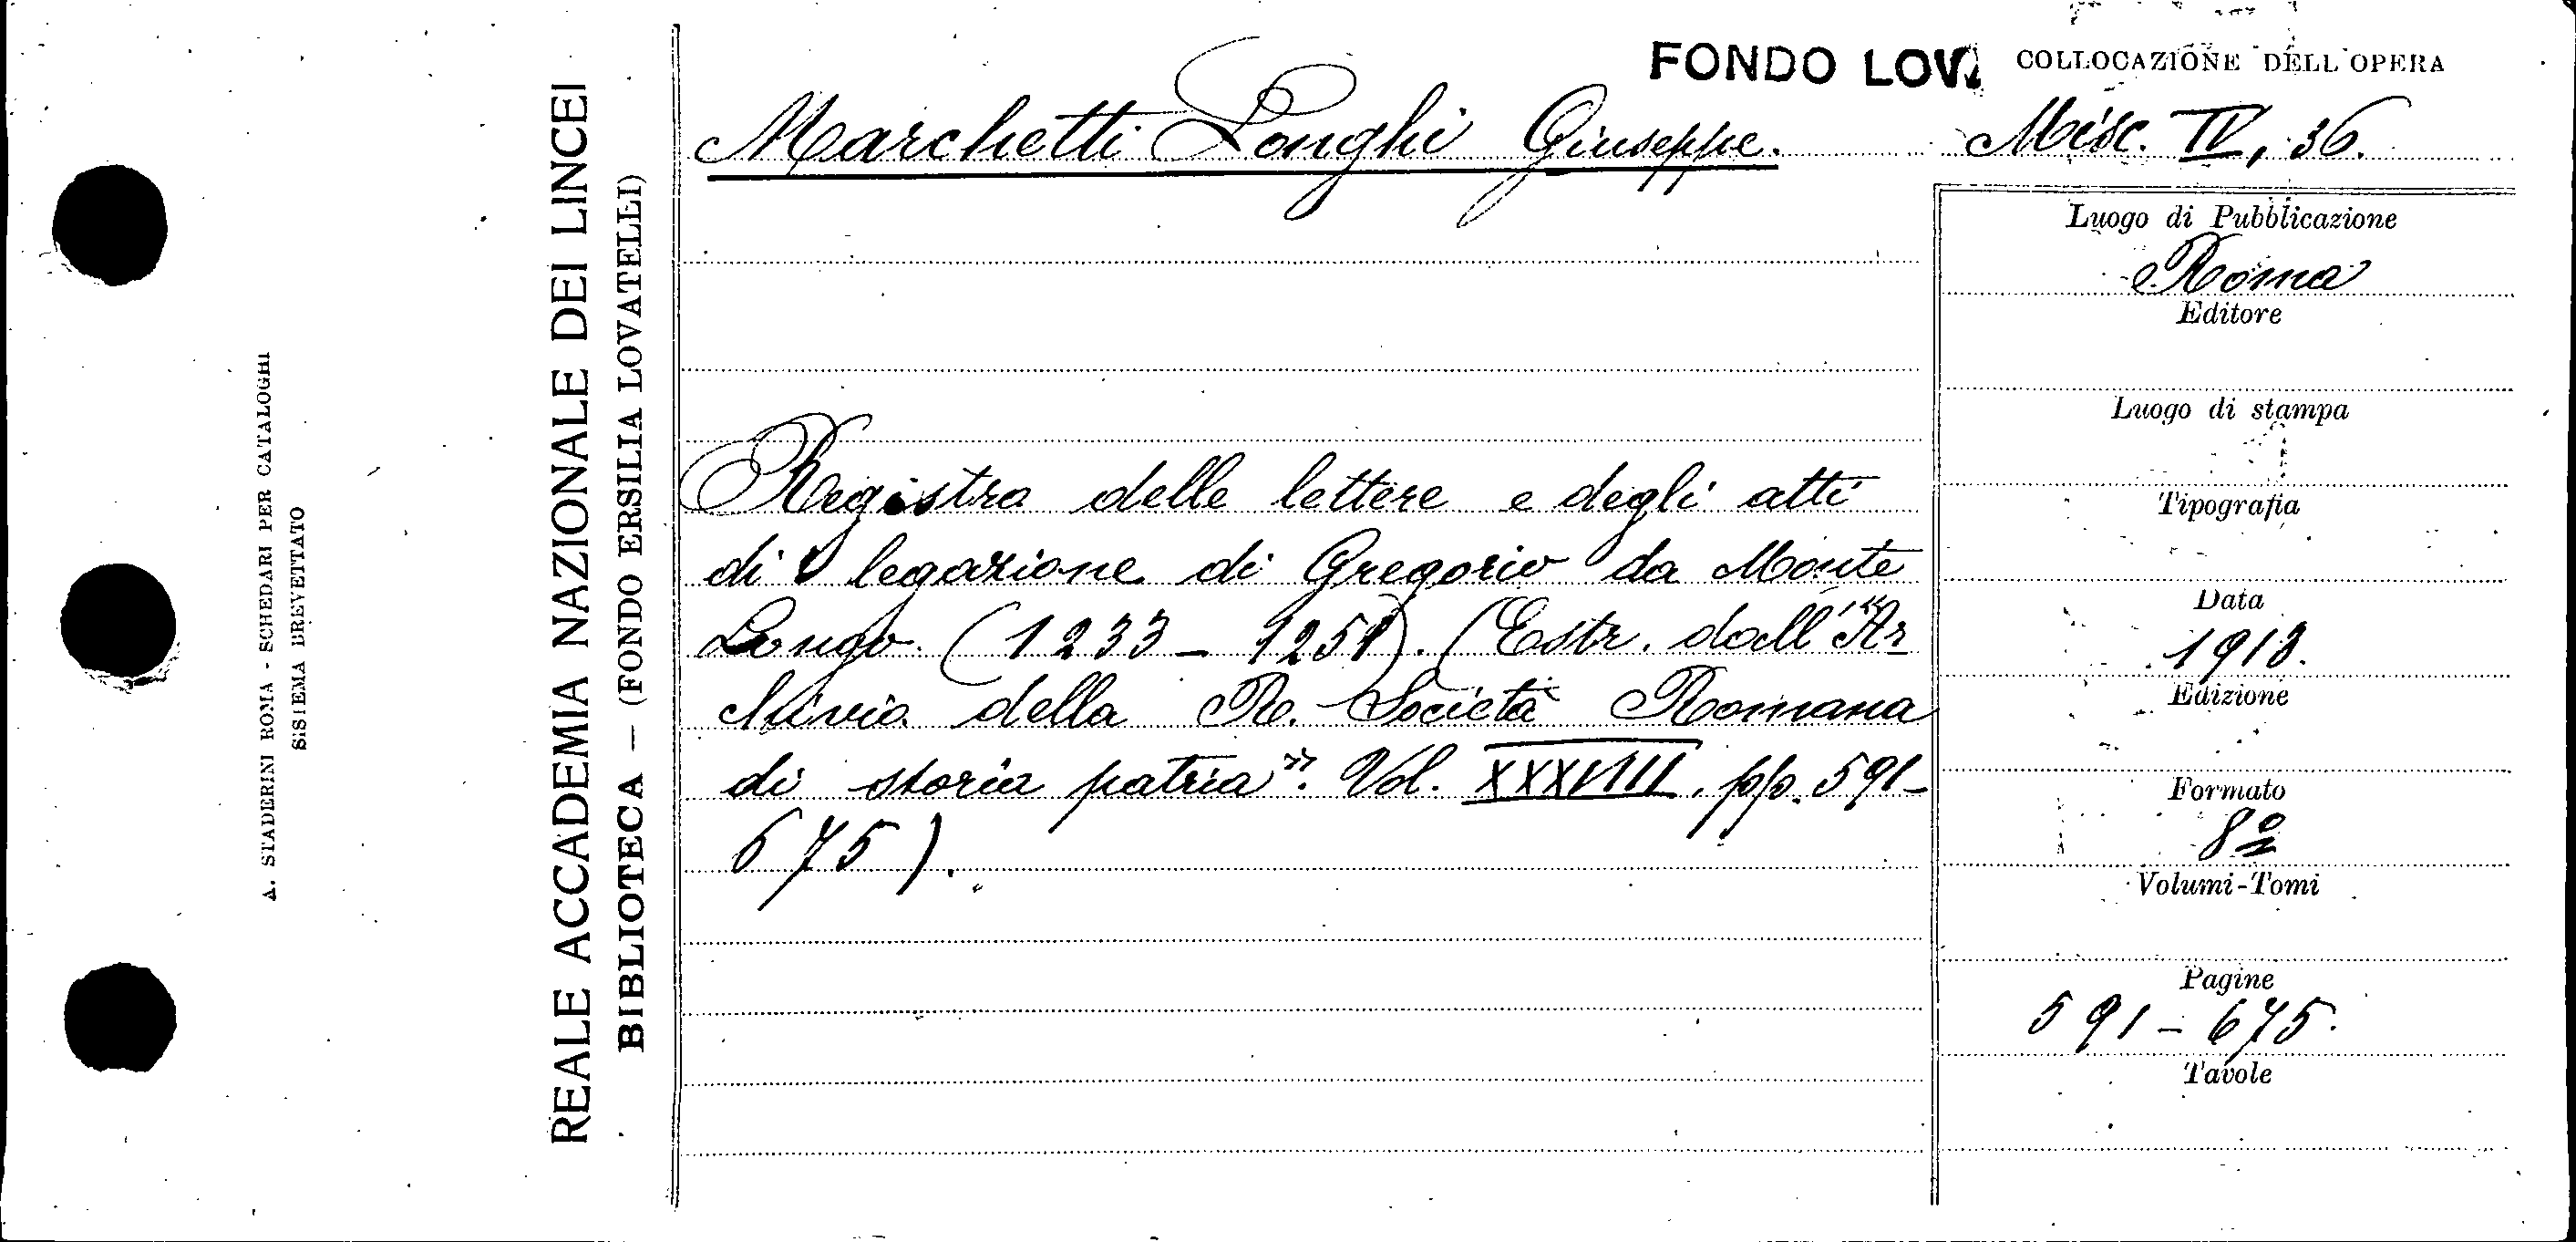 A. STADERINI ROMA - SCHEDARI PER CATALOGHI
SISTEMA BREVETTATO
REALE ACCADEMIA NAZIONALE DEI LINCEI
BIBLIOTECA — (FONDO ERSILIA LOVATELLI)
FONDO LOVA
COLLOCAZIONE DELL'OPERA
Marchetti Longhi Giuseppe.
Misc. IV, 36.
Registro delle lettere e degli atti
di legazione di Gregorio da Monte
Longo. (1233 - 1251). (Estr. dall'"Ar
chivio della R. Società Romana
di storia patria". Vol. XXXVIII, pp. 591-
675).
Luogo di Pubblicazione
Roma
Editore
Luogo di stampa
Tipografia
Data
1913.
Edizione
Formato
8º
Volumi-Tomi
Pagine
591 - 675.
Tavole